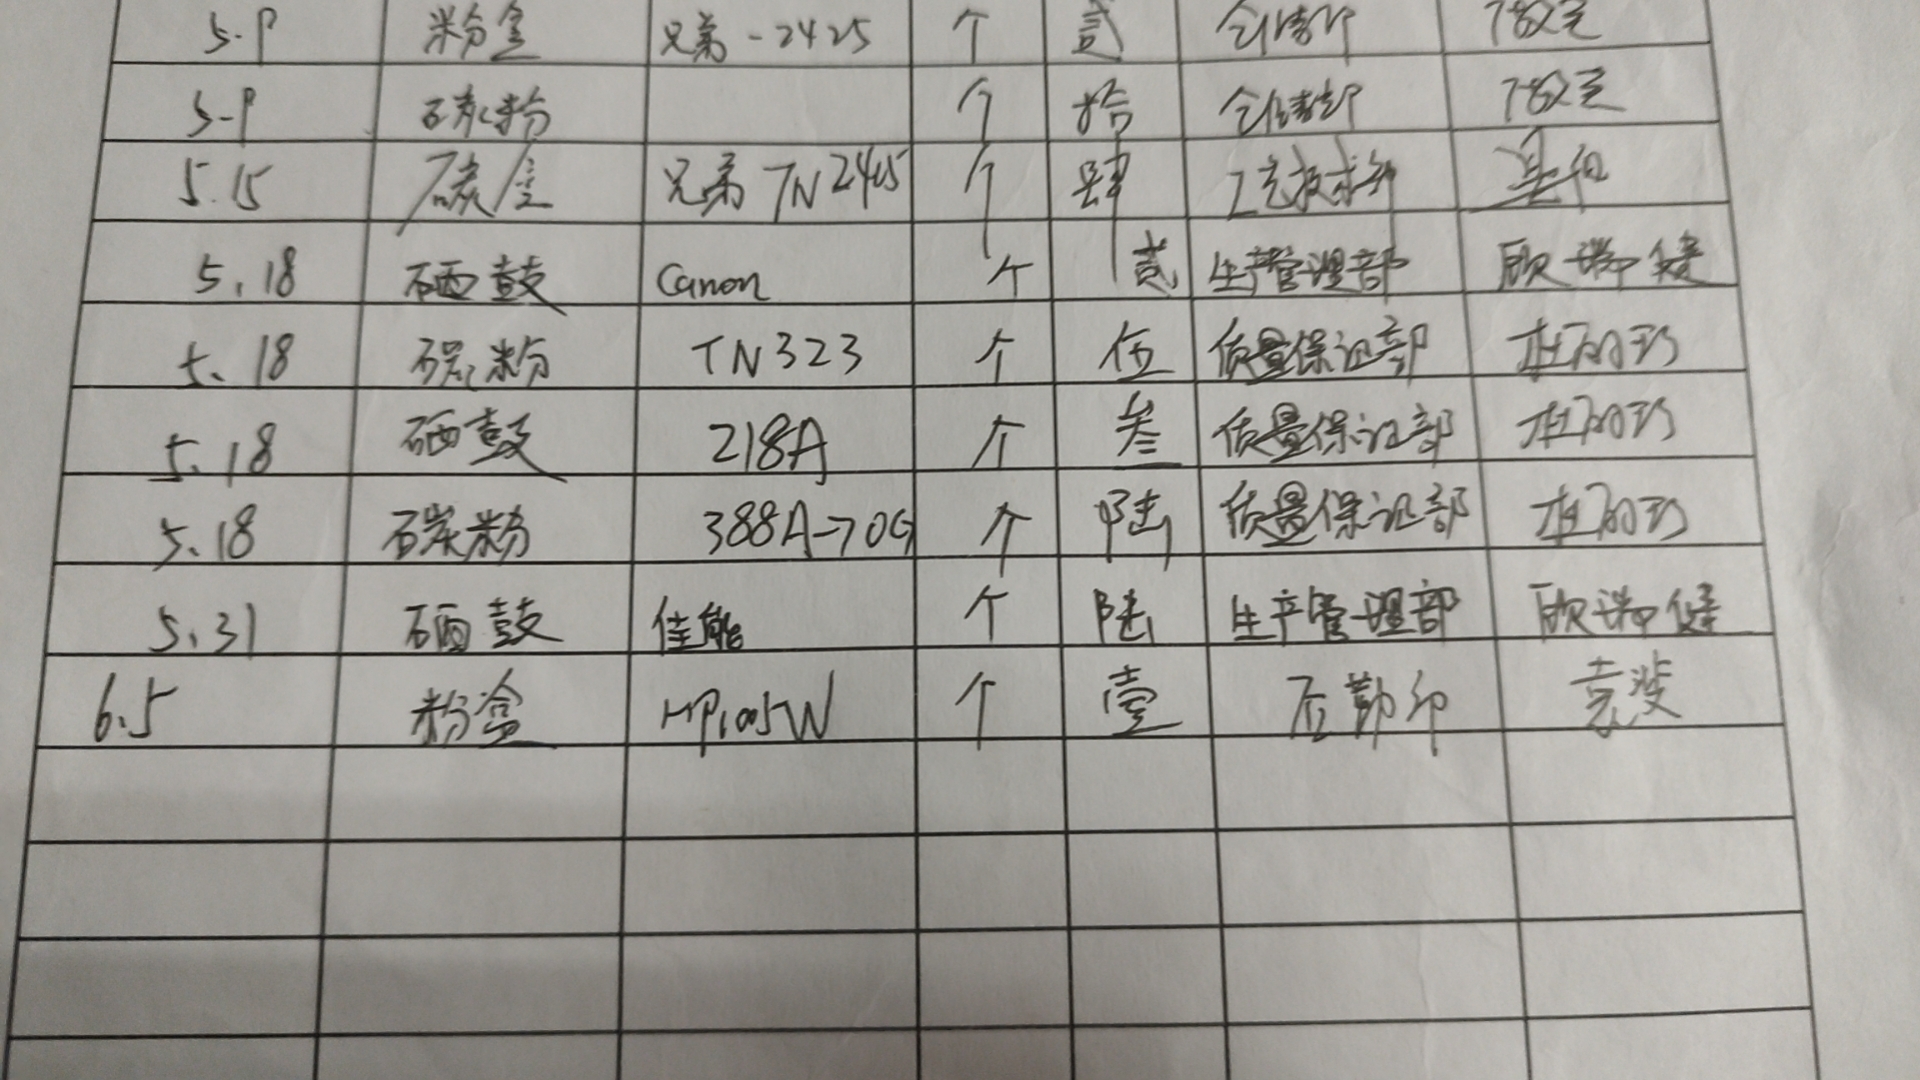 5.9 粉盒 兄弟-2425 个 贰 仓储部
5.9 碳粉 个 拾 仓储部
5.15 碳盒 兄弟 TN2405 个 肆 工艺技术部
5.18 硒鼓 Canon 个 贰 生产管理部 欧瑞健
5.18 碳粉 TN323 个 伍 质量保证部
5.18 硒鼓 218A 个 叁 质量保证部
5.18 碳粉 388A-70G 个 陆 质量保证部
5.31 硒鼓 佳能 个 陆 生产管理部 欧瑞健
6.5 粉盒 HP1005W 个 壹 后勤部